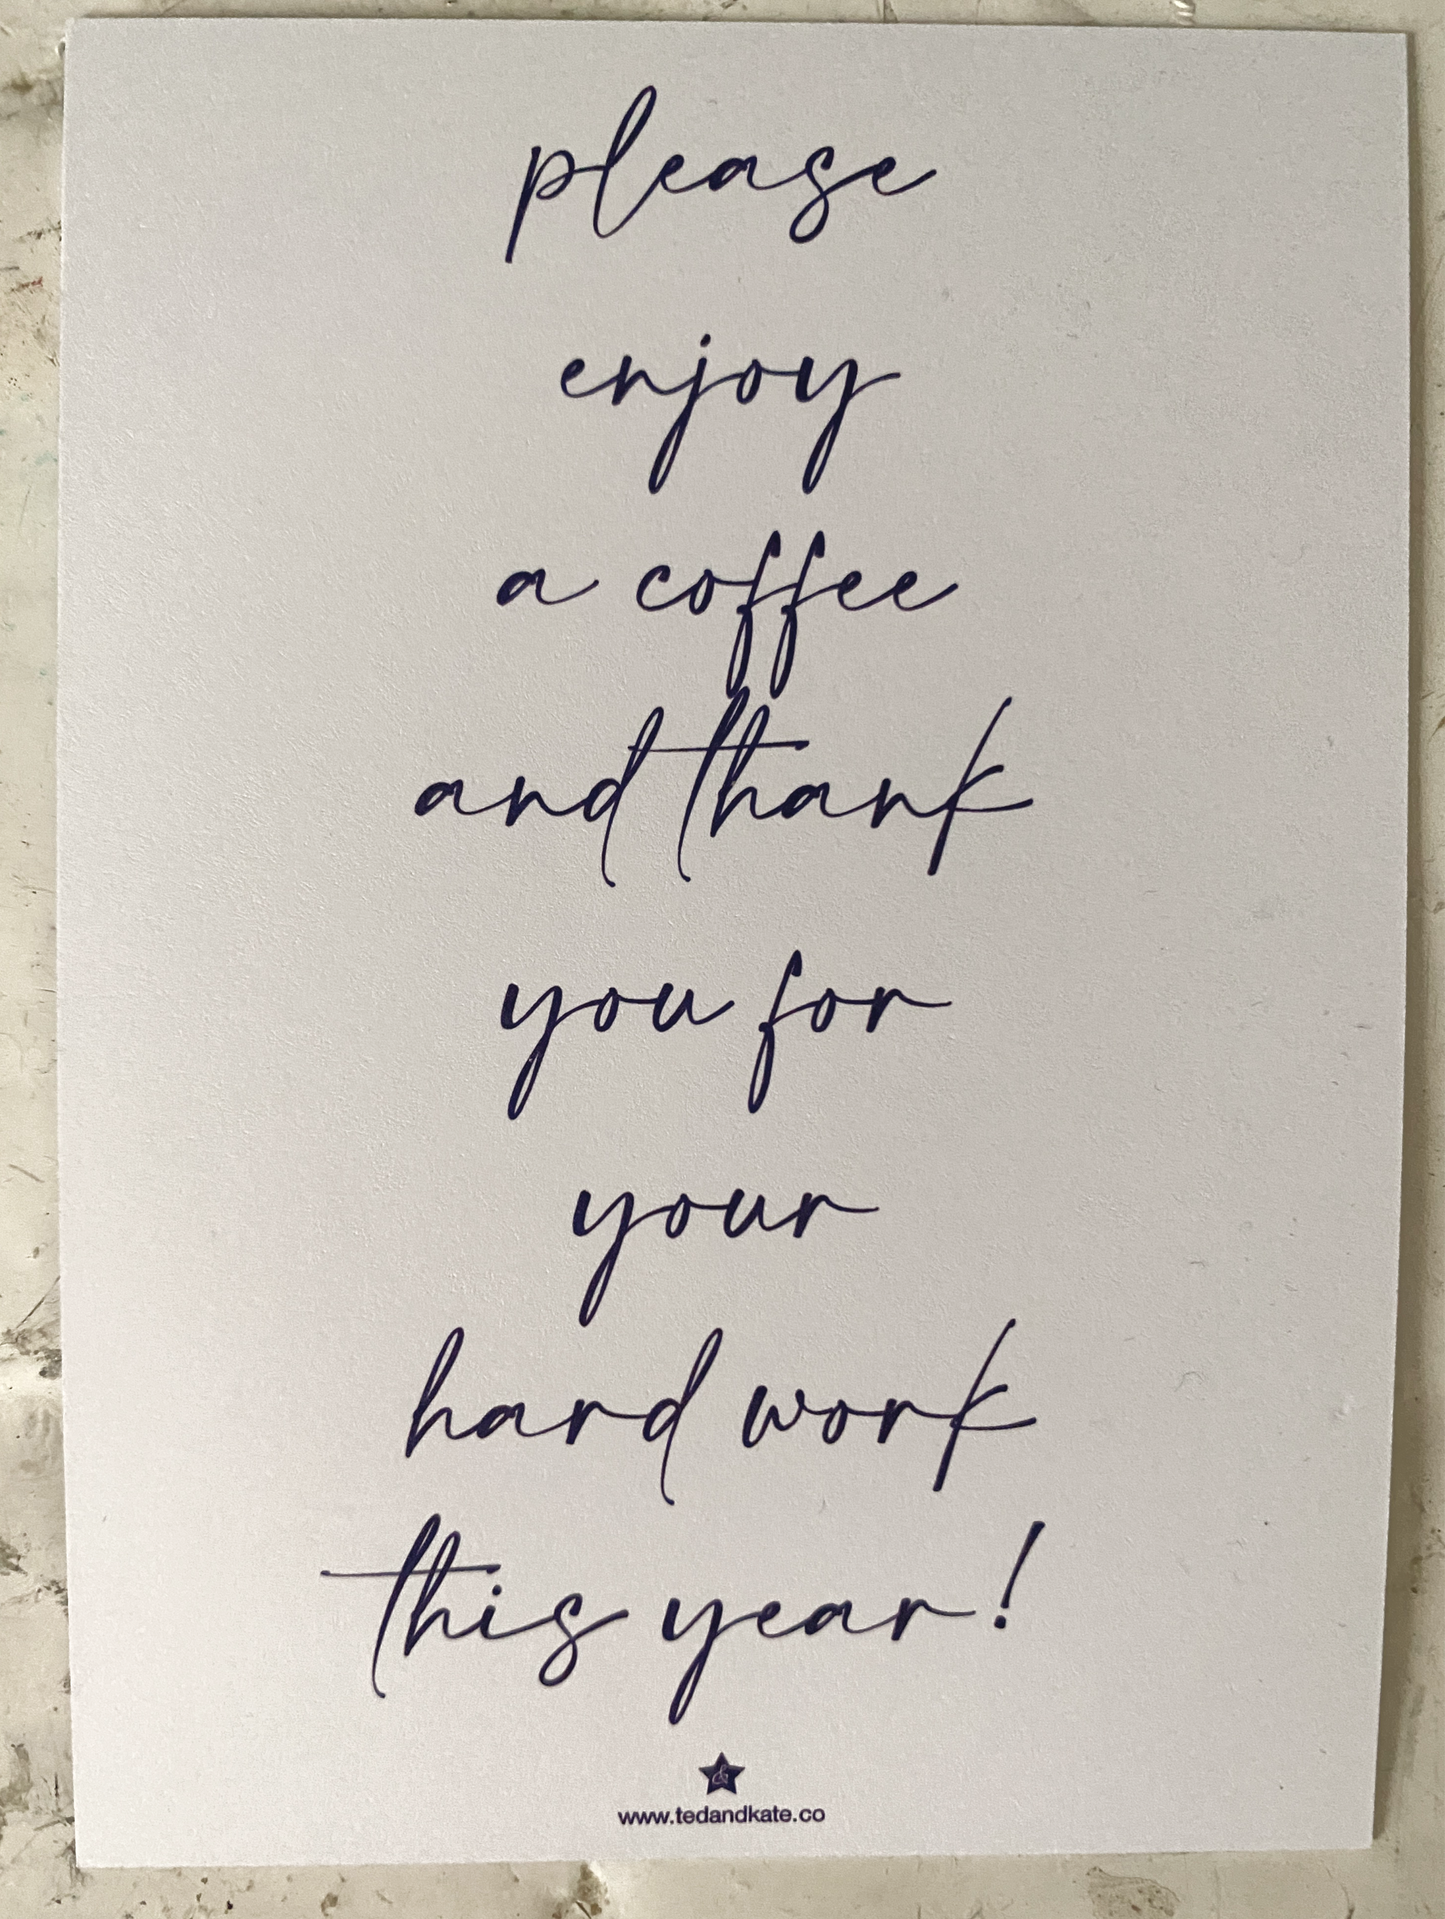 please
enjoy
a coffee
and thank
you for
your
hard work
this year!
&
www.tedandkate.co